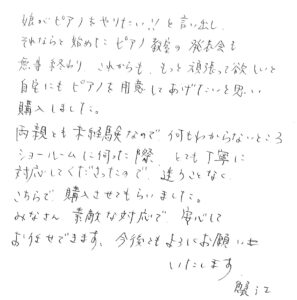 娘がピアノをやりたい!!と言い出し
それならと始めたピアノ教室の発表会も
無事終わり、これからも、もっと頑張って欲しいと
自宅にもピアノを用意してあげたいと思い
購入しました。
両親とも未経験なので何もわからないところ
ショールームに伺った際、とても丁寧に
対応してくださったので、迷うことなく、
こちらで購入させてもらいました。
みなさん素敵な対応で安心して
お任せできます。今後ともよろしくお願い
いたします